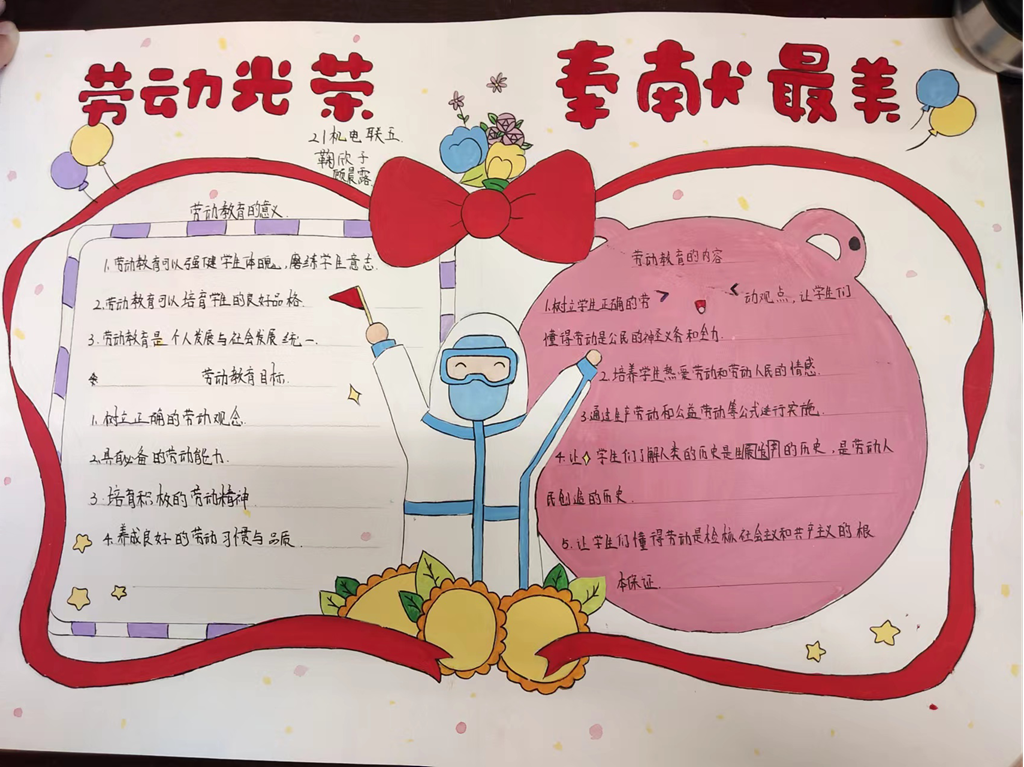 劳动光荣 奉献最美
21机电联五
鞠欣子
顾晨露
劳动教育的意义
1.劳动教育可以强健学生体魄,磨练学生意志.
2.劳动教育可以培育学生的良好品格.
3.劳动教育是个人发展与社会发展统一.
劳动教育目标.
1.树立正确的劳动观念.
2.具有必备的劳动能力.
3.培育积极的劳动精神
4.养成良好的劳动习惯与品质.
劳动教育的内容
1.树立学生正确的劳动观点,让学生们
懂得劳动是公民的神圣义务和全力.
2.培养学生热爱劳动和劳动人民的情感.
3通过生产劳动和公益劳动等公式进行实施.
4.让学生们了解人类的历史是生的历史,是劳动人
民创造的历史.
5.让学生们懂得劳动是社会主义和共产主义的根
本保证.